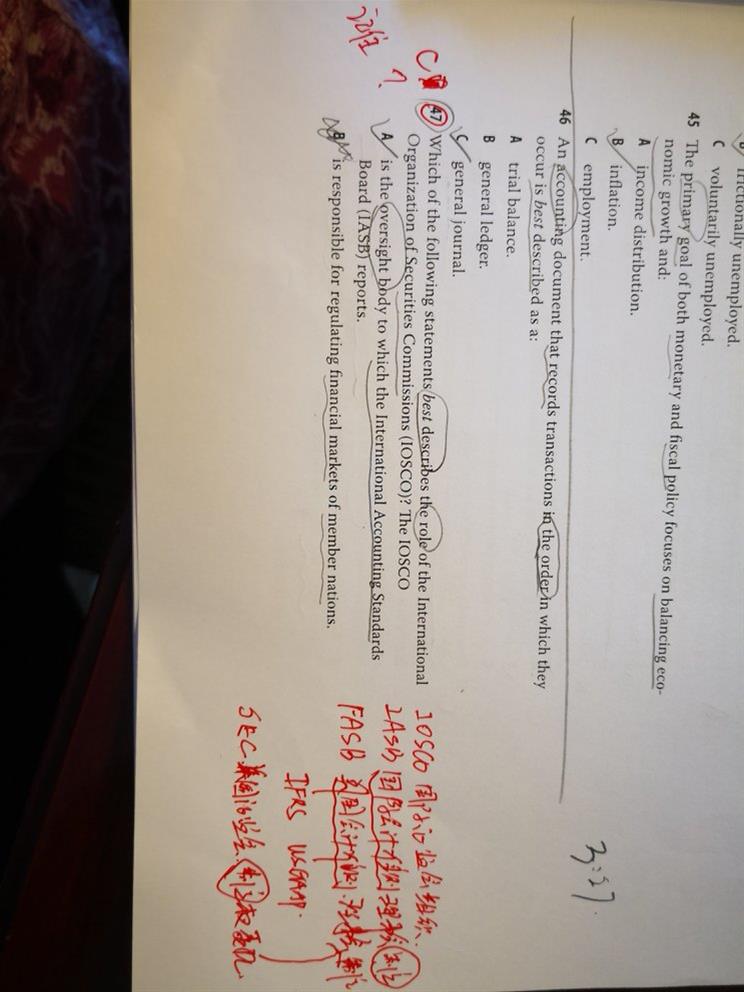 frictionally unemployed.
C voluntarily unemployed.
45 The primary goal of both monetary and fiscal policy focuses on balancing eco-
nomic growth and:
A income distribution.
B inflation.
C employment.
46 An accounting document that records transactions in the order in which they
occur is best described as a:
A trial balance.
B general ledger.
C general journal.
47 Which of the following statements best describes the role of the International
Organization of Securities Commissions (IOSCO)? The IOSCO
A is the oversight body to which the International Accounting Standards
Board (IASB) reports.
B is responsible for regulating financial markets of member nations.
C
?
3:27.
IOSCO 国际证监会组织.
IASB 国际会计准则理事会
FASB 美国会计准则
IFRS USGAAP.
SEC 美国证监会.